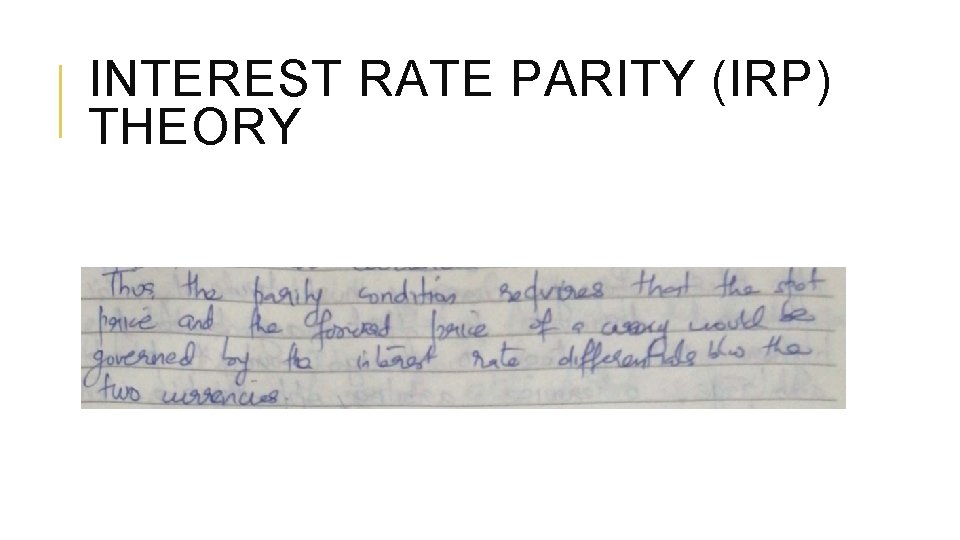 INTEREST RATE PARITY (IRP)
THEORY
Thus, the parity condition requires that the spot
price and the forward price of a would be
governed by the interest rate differentials b/w the
two currencies.